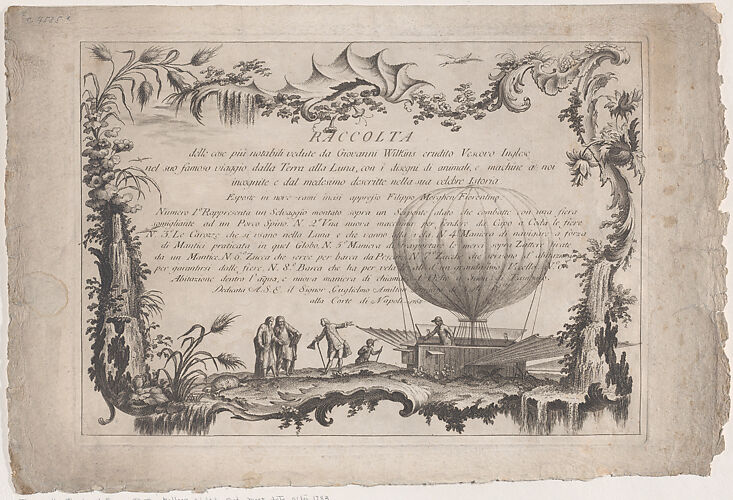 RACCOLTA
delle cose più notabili vedute da Giovanni Wilkins erudito Vescovo Inglese
nel suo famoso viaggio dalla Terra alla Luna, con i disegni di animali, e machine a noi
incognite e dal medesimo descritte nella sua celebre Istoria
Esposte in nove rami incisi appresso Filippo Morghen Fiorentino
Numero 1º Rappresenta un Selvaggio montato sopra un Serpente alato che combatte con una fiera
somigliante ad un Porco Spino. N. 2º Una nuova macchina per fendere da Capo a Coda le fiere
N 3º Le Carozze che si usano nella Luna, e che vanno alla vela. N. 4º Maniera di navigare a forza
di Mantici praticata in quel Globo. N. 5º Maniera di trasportar le merci sopra Zattere tirate
da un Mantice. N. 6º Zucca che serve per barca da Pesca. N. 7º Zucche che servono di abitazione
per garantirsi dalle fiere. N. 8º Barca che ha per vele le ali d'un grandissimo Vccello. N. 9º
Abitazione dentro l'acqua, e nuova maniera di
Dedicata A.S.E. il Signor Guglielmo Amilton
alla Corte di Napoli